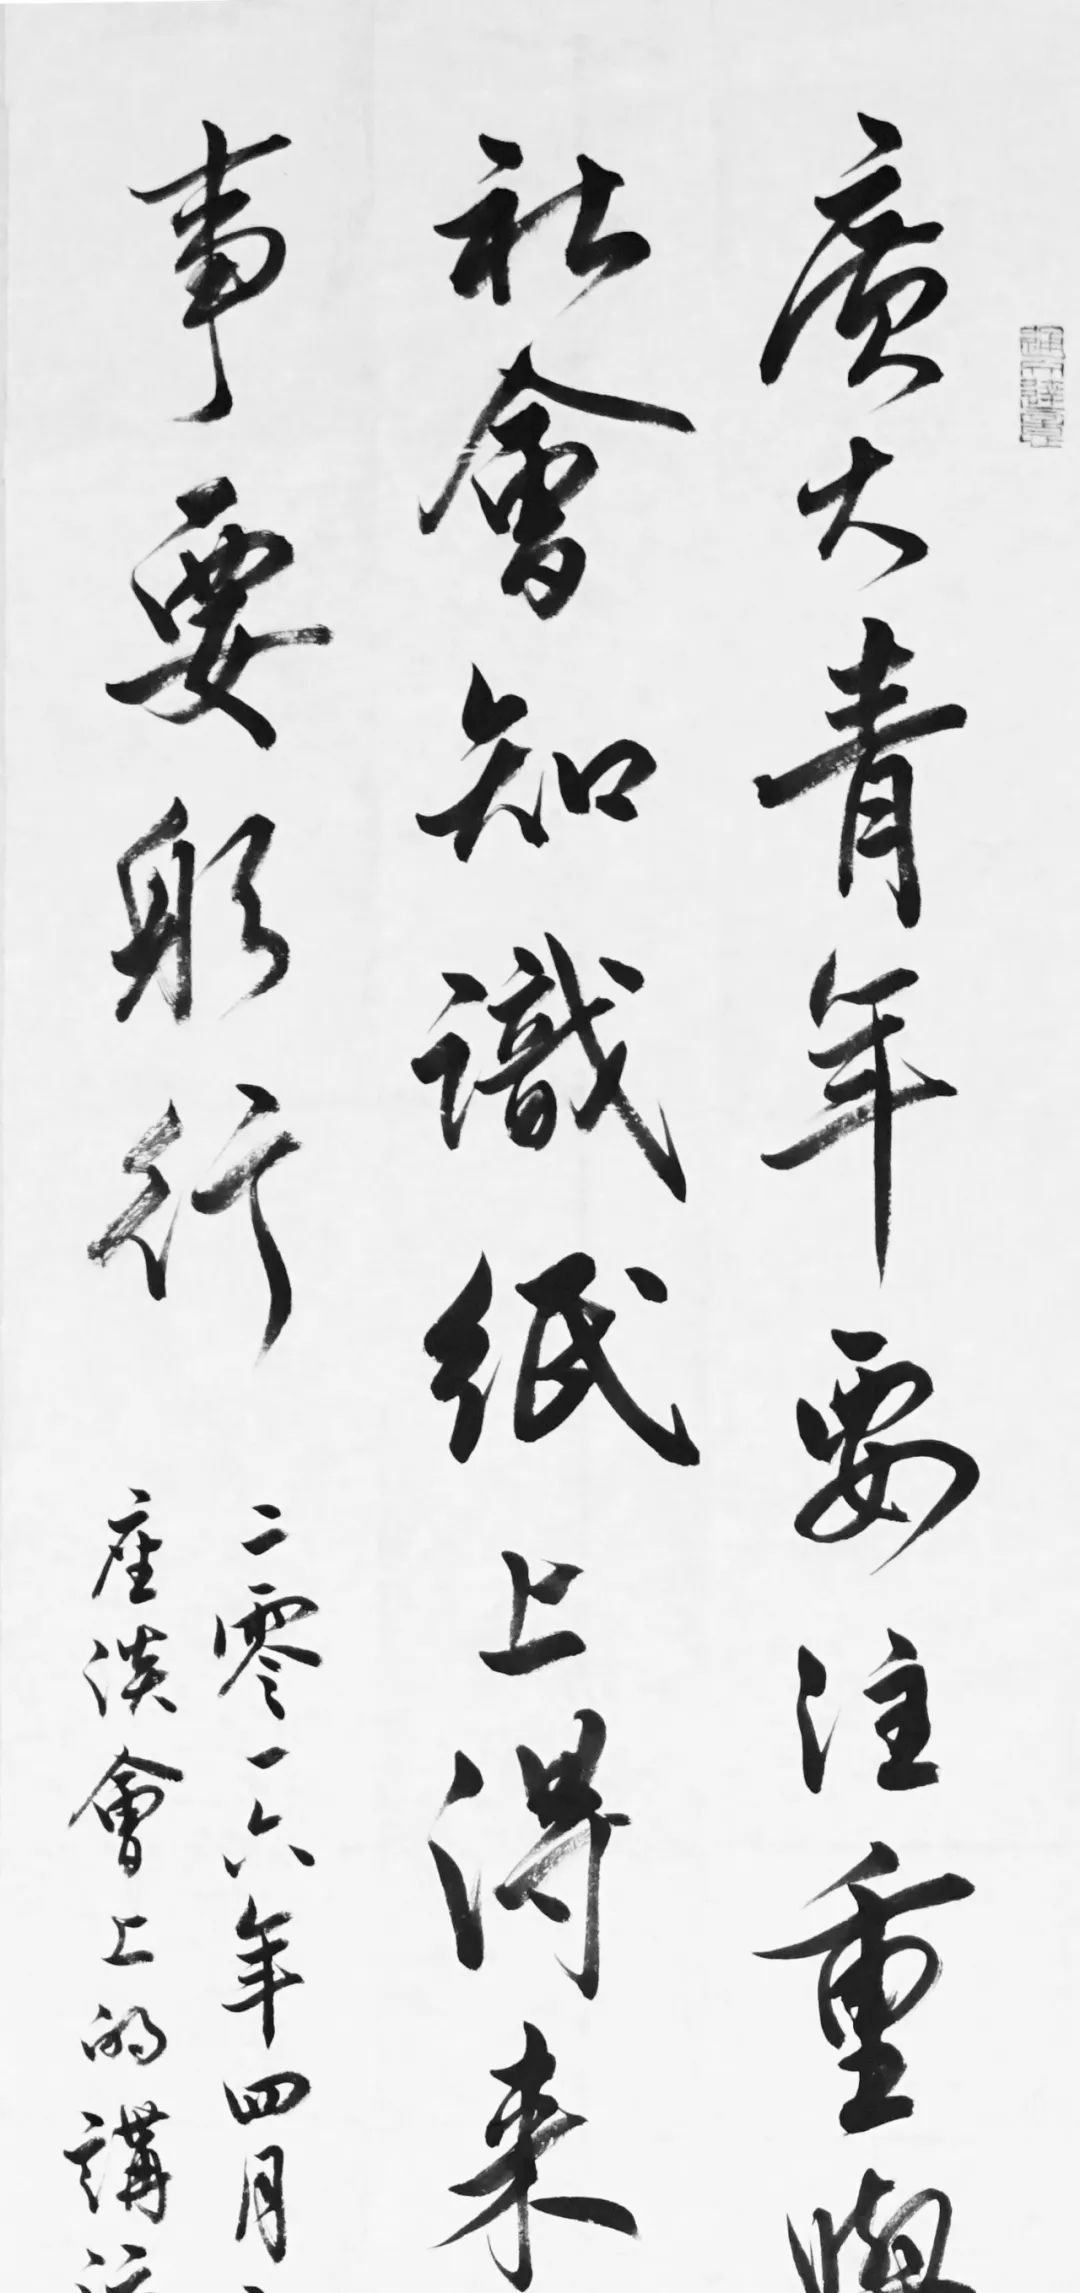 廣大青年要注重
社會知識紙上得来
事要躬行
二零一六年四月
座談會上的講